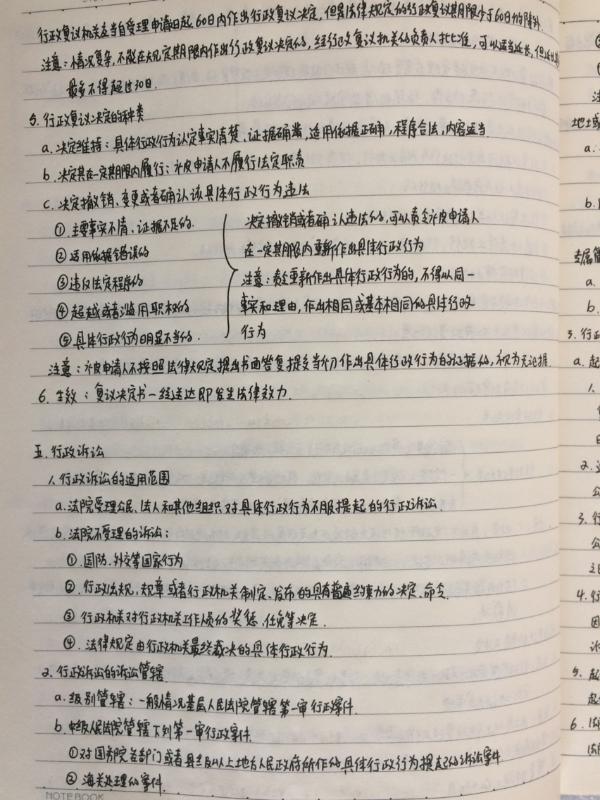 行政复议机关应当自受理申请日起60日内作出行政复议决定,但是法律规定的行政复议期限少于60日的除外.
注意:情况复杂,不能在规定期限内作出行政复议决定的,经行政复议机关的负责人批准,可以适当延长,但延长期
最多不得超过30日.
5.行政复议决定的种类
a.决定维持:具体行政行为认定事实清楚、证据确凿、适用依据正确,程序合法,内容适当
b.决定其在一定期限内履行:被申请人不履行法定职责
c.决定撤销、变更或者确认该具体行政行为违法
①.主要事实不清、证据不足的.
②适用依据错误的
③违反法定程序的
④超越或者滥用职权的
⑤具体行政行为明显不当的.
决定撤销或者确认违法的,可以责令被申请人
在一定期限内重新作出具体行政行为
注意:责令重新作出具体行政行为的,不得以同一
事实和理由,作出相同或基本相同的具体行政
行为
注意:被申请人不按照法律规定提出书面答复提交当初作出具体行政行为的证据的,视为无证据.
6.生效:复议决定书一经送达即发生法律效力.
五.行政诉讼
1.行政诉讼的适用范围
a.法院受理公民、法人和其他组织对具体行政行为不服提起的行政诉讼.
b.法院不受理的诉讼:
①.国防、外交等国家行为
②.行政法规,规章或者行政机关制定、发布的具有普遍约束力的决定、命令.
③行政机关对行政机关工作人员的奖惩、任免等决定.
④.法律规定由行政机关最终裁决的具体行政行为.
2.行政诉讼的诉讼管辖
a.级别管辖:一般情况基层人民法院管辖第一审行政案件.
b.中级人民法院管辖下列第一审行政案件.
①对国务院各部门或者县级以上地方人民政府所作的具体行政行为提起的诉讼案件
②海关处理的案件.
NOTEBOOK
注
地土或
a.
b.
专属管
a.
b.
3.行政
a.起
1.
2.
公
3.行
公
4.行
因
诉
5.起
起
6.法